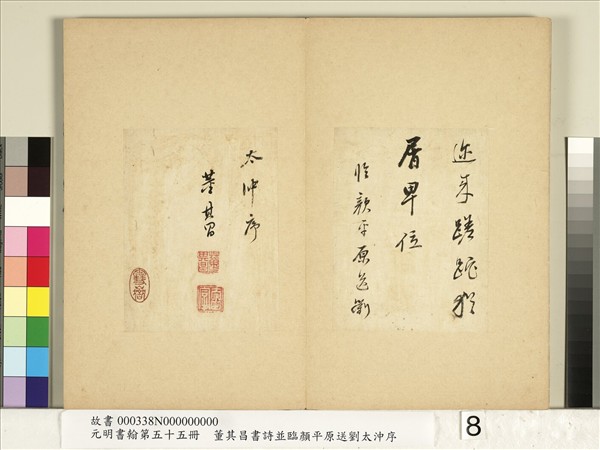 迩来蹉跎猶
屑卑位
臨顏平原送劉
太沖序
董其昌
故書 000338N000000000
元明書翰第五十五冊 董其昌書詩並臨顏平原送劉太沖序
8